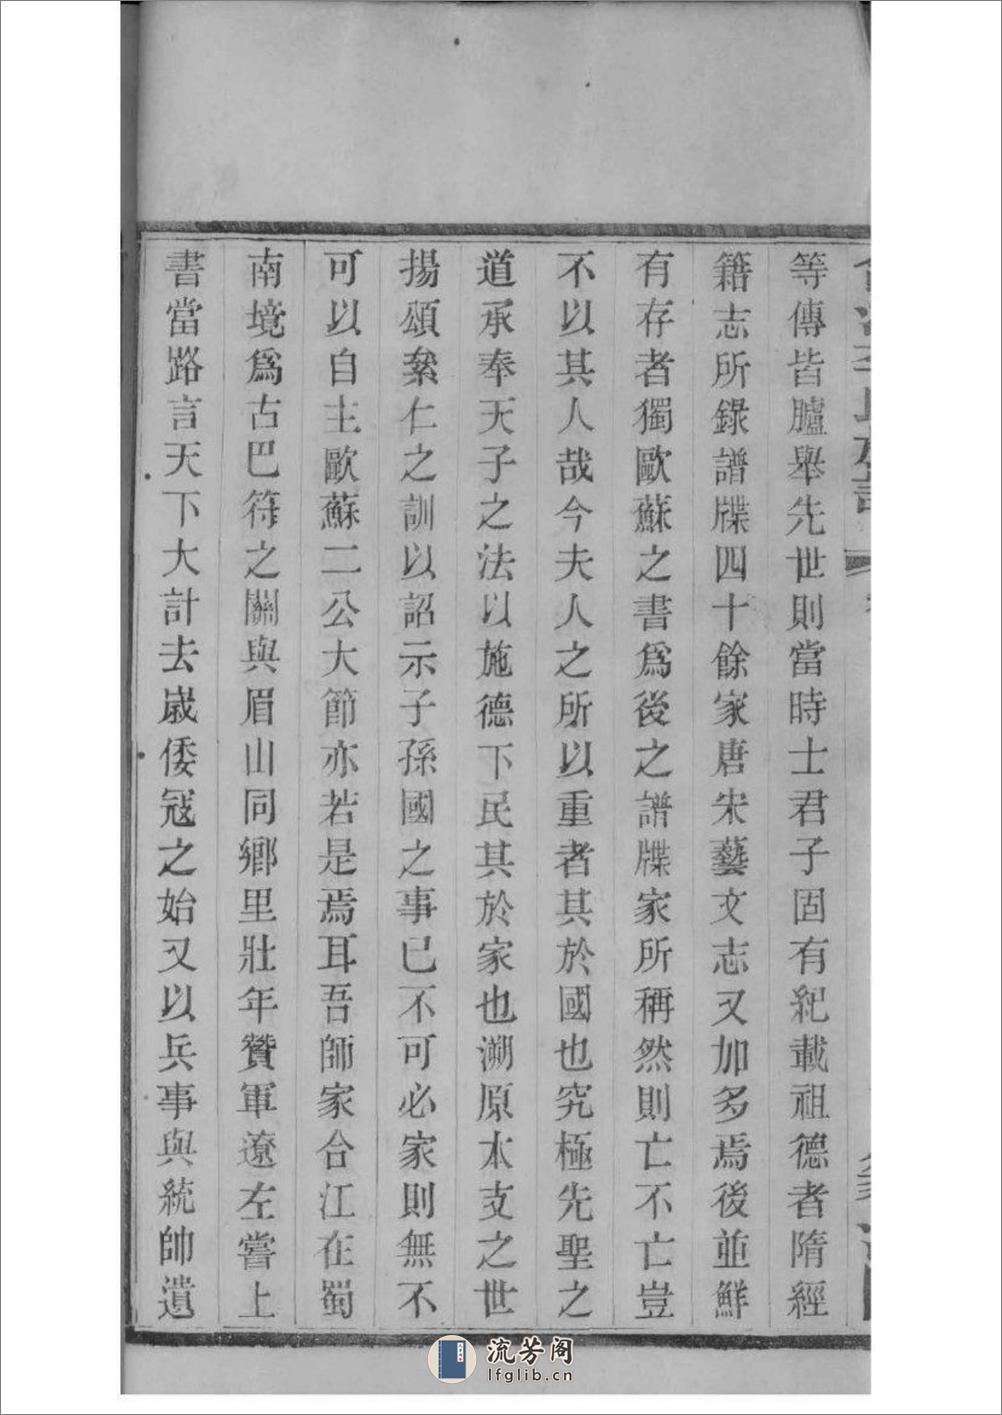 等傳皆臚舉先世則當時士君子固有紀載祖德者隋經
籍志所錄譜牒四十餘家唐宋藝文志又加多焉後並鮮
有存者獨歐蘇之書爲後之譜牒家所稱然則亡不亡豈
不以其人哉今夫人之所以重者其於國也究極先聖之
道承奉天子之法以施德下民其於家也溯原本支之世
揚頌絫仁之訓以詔示子孫國之事已不可必家則無不
可以自主歐蘇二公大節亦若是焉耳吾師家合江在蜀
南境爲古巴符之關與眉山同鄉里壯年贊軍遼左嘗上
書當路言天下大計去嵗倭寇之始又以兵事與統帥遺
流芳阁
lfglib.cn